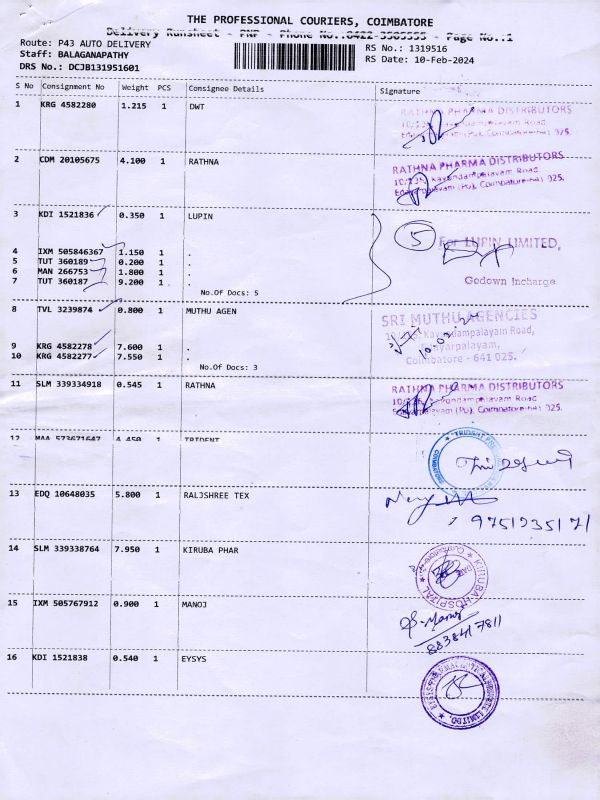 THE PROFESSIONAL COURIERS, COIMBATORE
Delivery Runsheet - PNP - Phone No.:0422-3505555 - Page No.:1
Route: P43 AUTO DELIVERY
RS No.: 1319516
Staff: BALAGANAPATHY
RS Date: 10-Feb-2024
DRS No.: DCJB131951601
S No Consignment No Weight PCS Consignee Details Signature
1 KRG 4582280 1.215 1 DWT
RATHNA PHARMA DISTRIBUTORS
2 CDM 20105675 4.100 1 RATHNA
RATHNA PHARMA DISTRIBUTORS
10/135, Kavundampalayam Road
Edayarpalayam (Po), Coimbatore 025.
3 KDI 1521836 0.350 1 LUPIN
5 For LUPIN LIMITED,
4 IXM 505846367 1.150 1 .
5 TUT 360189 0.200 1 .
6 MAN 266753 1.800 1 .
7 TUT 360187 9.200 1 .
Godown Incharge
No.Of Docs: 5
8 TVL 3239874 0.800 1 MUTHU AGEN
SRI MUTHU AGENCIES
Kavundampalayam Road,
Edayarpalayam,
9 KRG 4582278 7.600 1 .
10 KRG 4582277 7.550 1 .
Coimbatore - 641 025.
No.Of Docs: 3
11 SLM 339334918 0.545 1 RATHNA
RATHNA PHARMA DISTRIBUTORS
12 MAA 573671647 4.450 1 TRIDENT
13 EDQ 10648035 5.800 1 RALJSHREE TEX
14 SLM 339338764 7.950 1 KIRUBA PHAR
KIRUBA HOSPITAL
15 IXM 505767912 0.900 1 MANOJ
16 KDI 1521838 0.540 1 EYSYS